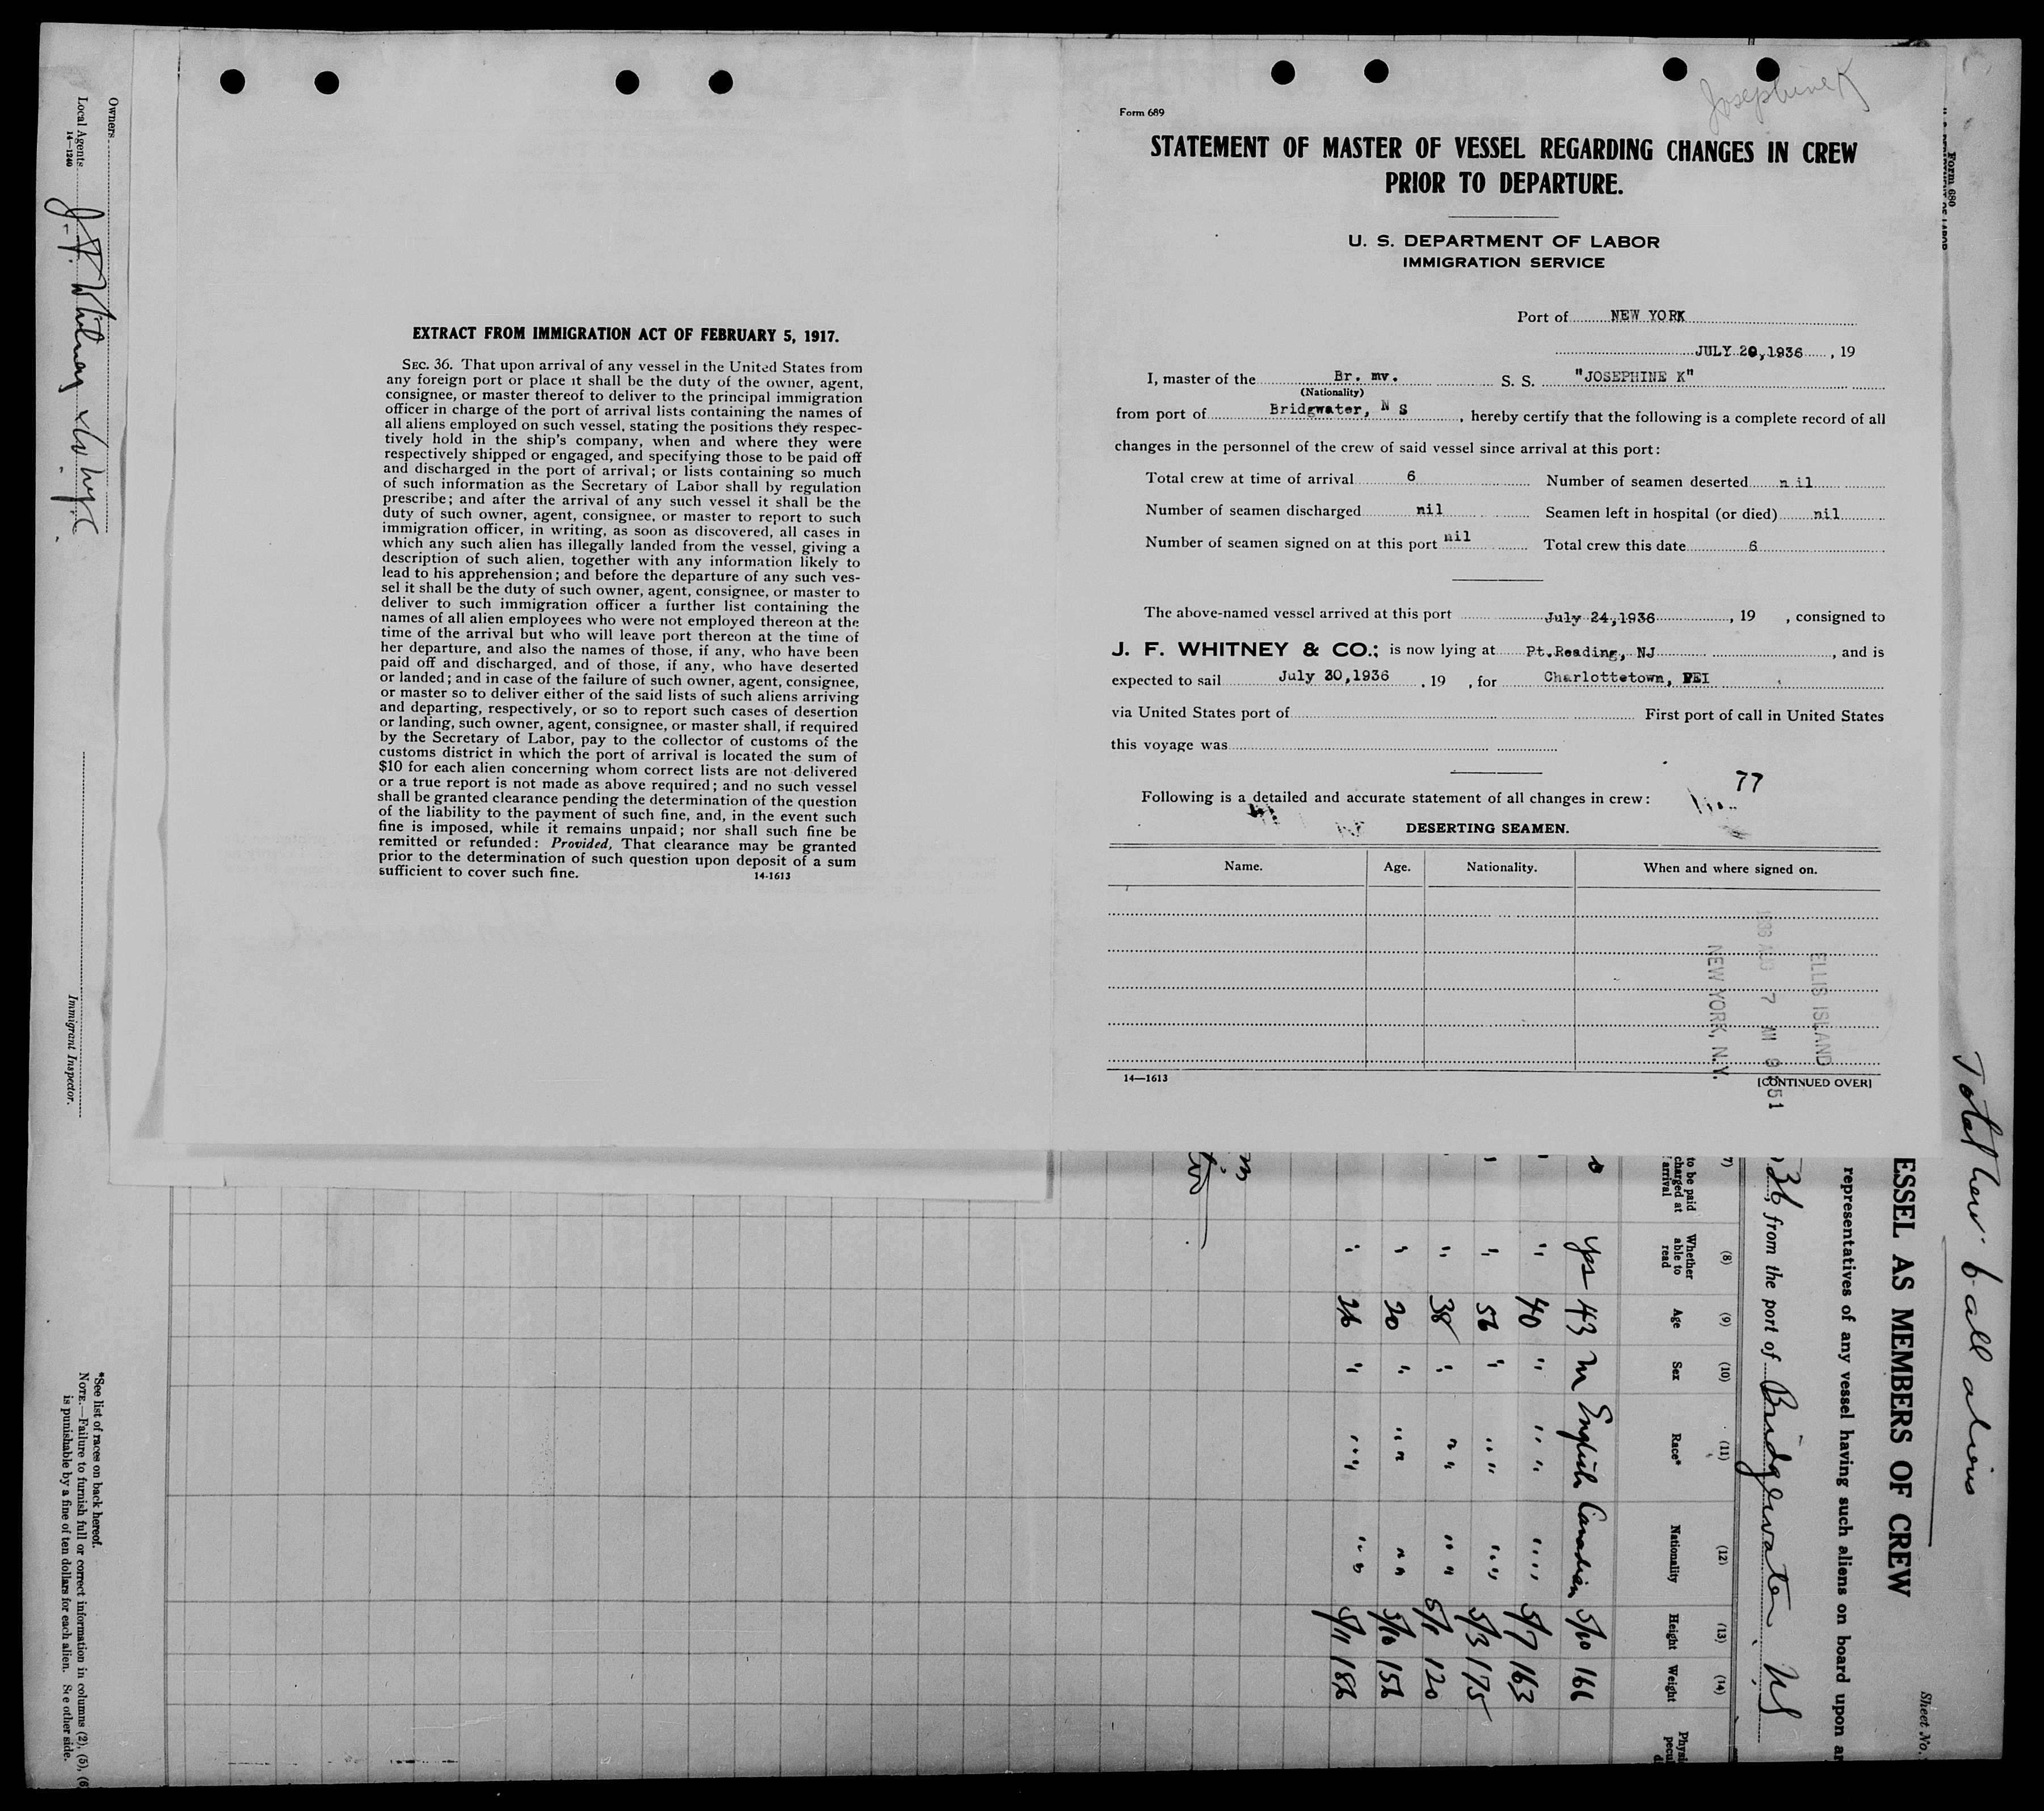 Owners
Local Agents J. F. Whitney
14—1240
Immigrant Inspector.
*See list of races on back hereof.
NOTE.—Failure to furnish full or correct information in columns (2), (5), (6
is punishable by a fine of ten dollars for each alien. See other side.
EXTRACT FROM IMMIGRATION ACT OF FEBRUARY 5, 1917.
SEC. 36. That upon arrival of any vessel in the United States from
any foreign port or place it shall be the duty of the owner, agent,
consignee, or master thereof to deliver to the principal immigration
officer in charge of the port of arrival lists containing the names of
all aliens employed on such vessel, stating the positions they respec-
tively hold in the ship's company, when and where they were
respectively shipped or engaged, and specifying those to be paid off
and discharged in the port of arrival; or lists containing so much
of such information as the Secretary of Labor shall by regulation
prescribe; and after the arrival of any such vessel it shall be the
duty of such owner, agent, consignee, or master to report to such
immigration officer, in writing, as soon as discovered, all cases in
which any such alien has illegally landed from the vessel, giving a
description of such alien, together with any information likely to
lead to his apprehension; and before the departure of any such ves-
sel it shall be the duty of such owner, agent, consignee, or master to
deliver to such immigration officer a further list containing the
names of all alien employees who were not employed thereon at the
time of the arrival but who will leave port thereon at the time of
her departure, and also the names of those, if any, who have been
paid off and discharged, and of those, if any, who have deserted
or landed; and in case of the failure of such owner, agent, consignee,
or master so to deliver either of the said lists of such aliens arriving
and departing, respectively, or so to report such cases of desertion
or landing, such owner, agent, consignee, or master shall, if required
by the Secretary of Labor, pay to the collector of customs of the
customs district in which the port of arrival is located the sum of
$10 for each alien concerning whom correct lists are not delivered
or a true report is not made as above required; and no such vessel
shall be granted clearance pending the determination of the question
of the liability to the payment of such fine, and, in the event such
fine is imposed, while it remains unpaid; nor shall such fine be
remitted or refunded: Provided, That clearance may be granted
prior to the determination of such question upon deposit of a sum
sufficient to cover such fine. 14-1613
Josephine K
Form 689
STATEMENT OF MASTER OF VESSEL REGARDING CHANGES IN CREW
PRIOR TO DEPARTURE.
U. S. DEPARTMENT OF LABOR
IMMIGRATION SERVICE
Port of NEW YORK
JULY 29,1936, 19
I, master of the Br. mv. S. S. "JOSEPHINE K"
(Nationality)
from port of Bridgwater, N S, hereby certify that the following is a complete record of all
changes in the personnel of the crew of said vessel since arrival at this port:
Total crew at time of arrival 6 Number of seamen deserted nil
Number of seamen discharged nil Seamen left in hospital (or died) nil
Number of seamen signed on at this port nil Total crew this date 6
The above-named vessel arrived at this port July 24,1936, 19 , consigned to
J. F. WHITNEY & CO.; is now lying at Pt.Reading, NJ, and is
expected to sail July 30,1936, 19 , for Charlottetown, PEI
via United States port of First port of call in United States
this voyage was
77
Following is a detailed and accurate statement of all changes in crew:
DESERTING SEAMEN.
Name. Age. Nationality. When and where signed on.
ELLIS ISLAND
1936 AUG 7 AM 9 51
NEW YORK, N.Y.
14—1613 [CONTINUED OVER]
Form 680
Total crew 6 all aliens
Sheet No.
ESSEL AS MEMBERS OF CREW
representatives of any vessel having such aliens on board upon ar
36, from the port of Bridgewater NS
7) (8) (9) (10) (11) (12) (13) (14)
to be paid charged at arrival Whether able to read Age Sex Race* Nationality Height Weight
yes 43 M English Canadian 5/10 166
" 40 " " " " " 5/7 163
" 56 " " " " " 5/3 175
" 38 " " " " " 5/1 120
" 20 " " " " " 5/10 156
" 26 " " " " " 5/11 186